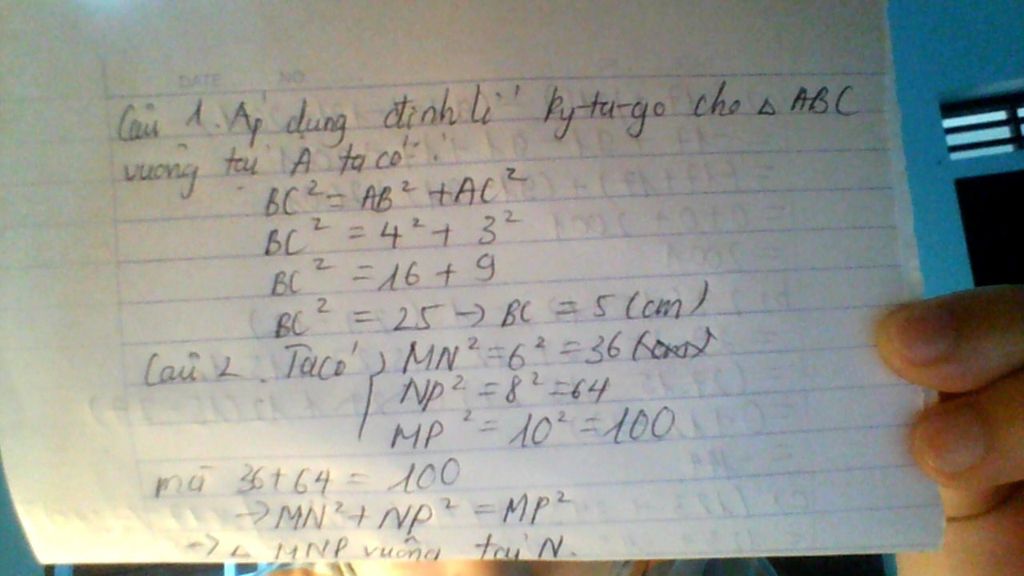 DATE NO
Câu 1. Áp dụng định lí ky-ta-go cho △ ABC
vuông tại A ta có:
BC² = AB² + AC²
BC² = 4² + 3²
BC² = 16 + 9
BC² = 25 → BC = 5 (cm)
Câu 2. Ta có MN² = 6² = 36
NP² = 8² = 64
MP² = 10² = 100
mà 36 + 64 = 100
→ MN² + NP² = MP²
→ △ MNP vuông tại N.